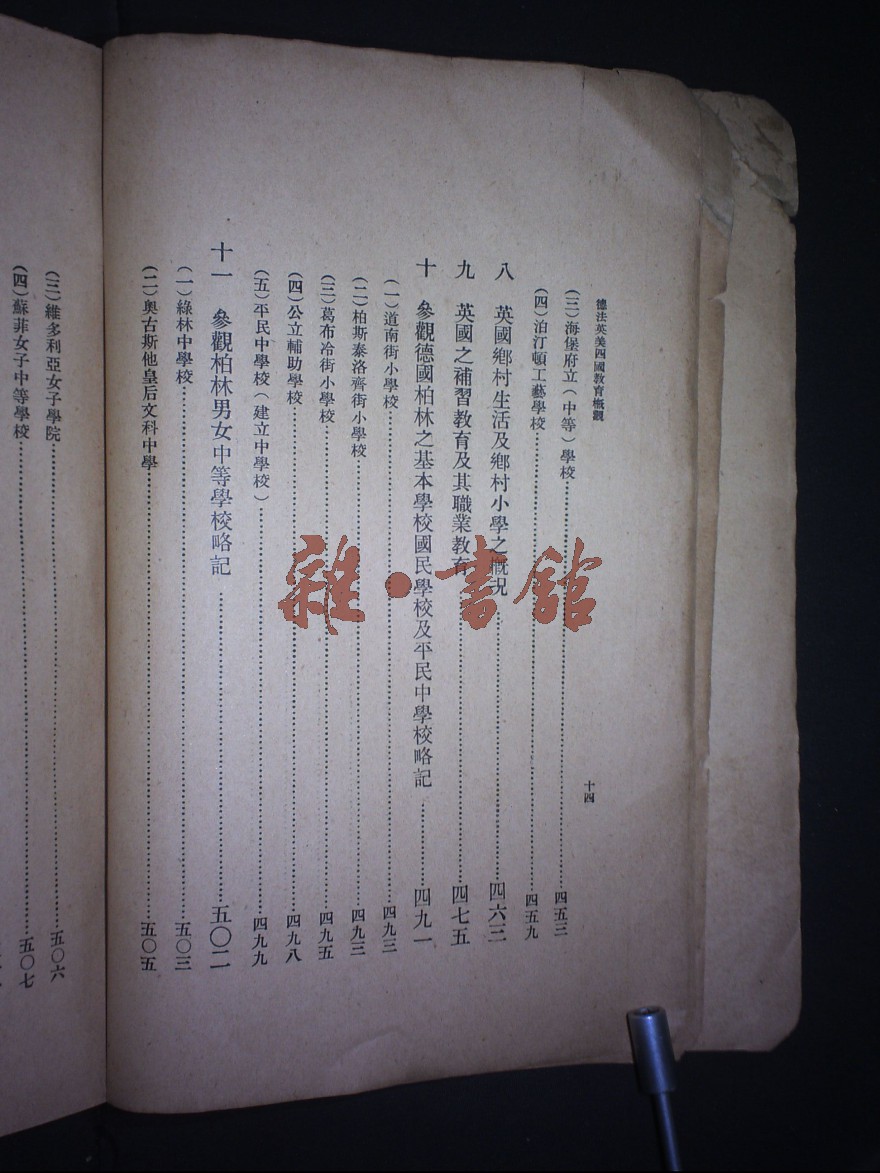 德法英美四國教育概觀
十四
(三)海堡府立(中等)學校……四五三
(四)泊汀頓工藝學校……四五九
八 英國鄉村生活及鄉村小學之概況……四六三
九 英國之補習教育及其職業教育……四七五
十 參觀德國柏林之基本學校國民學校及平民中學校略記……四九一
(一)道南街小學校……四九三
(二)柏斯泰洛齊街小學校……四九三
(三)葛布冷街小學校……四九五
(四)公立輔助學校……四九八
(五)平民中學校(建立中學校)……四九九
十一 參觀柏林男女中等學校略記……五〇二
(一)綠林中學校……五〇三
(二)奧古斯他皇后文科中學……五〇五
(三)維多利亞女子學院……五〇六
(四)蘇菲女子中等學校……五〇七
雜·書館